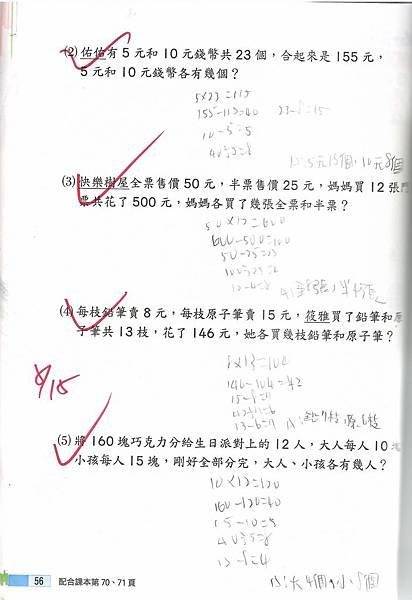 (2) 佑佑有5元和10元錢幣共23個，合起來是155元，
5元和10元錢幣各有幾個？
5×23=115
155-115=40 23-8=15
10-5=5
40÷5=8
A:5元15個,10元8個
(3) 快樂樹屋全票售價50元，半票售價25元，媽媽買12張門
票共花了500元，媽媽各買了幾張全票和半票？
50×12=600
600-500=100
50-25=25
100÷25=4
12-4=8
(4) 每枝鉛筆賣8元，每枝原子筆賣15元，筱雅買了鉛筆和原
子筆共13枝，花了146元，她各買幾枝鉛筆和原子筆？
8×13=104
146-104=42
15-8=7
42÷7=6
13-6=7 A:鉛7枝,原6枝
8/15
(5) 將160塊巧克力分給生日派對上的12人，大人每人10塊
小孩每人15塊，剛好全部分完，大人、小孩各有幾人？
10×12=120
160-120=40
15-10=5
40÷5=8
12-8=4
A:大4個,小8個
56 配合課本第70、71頁